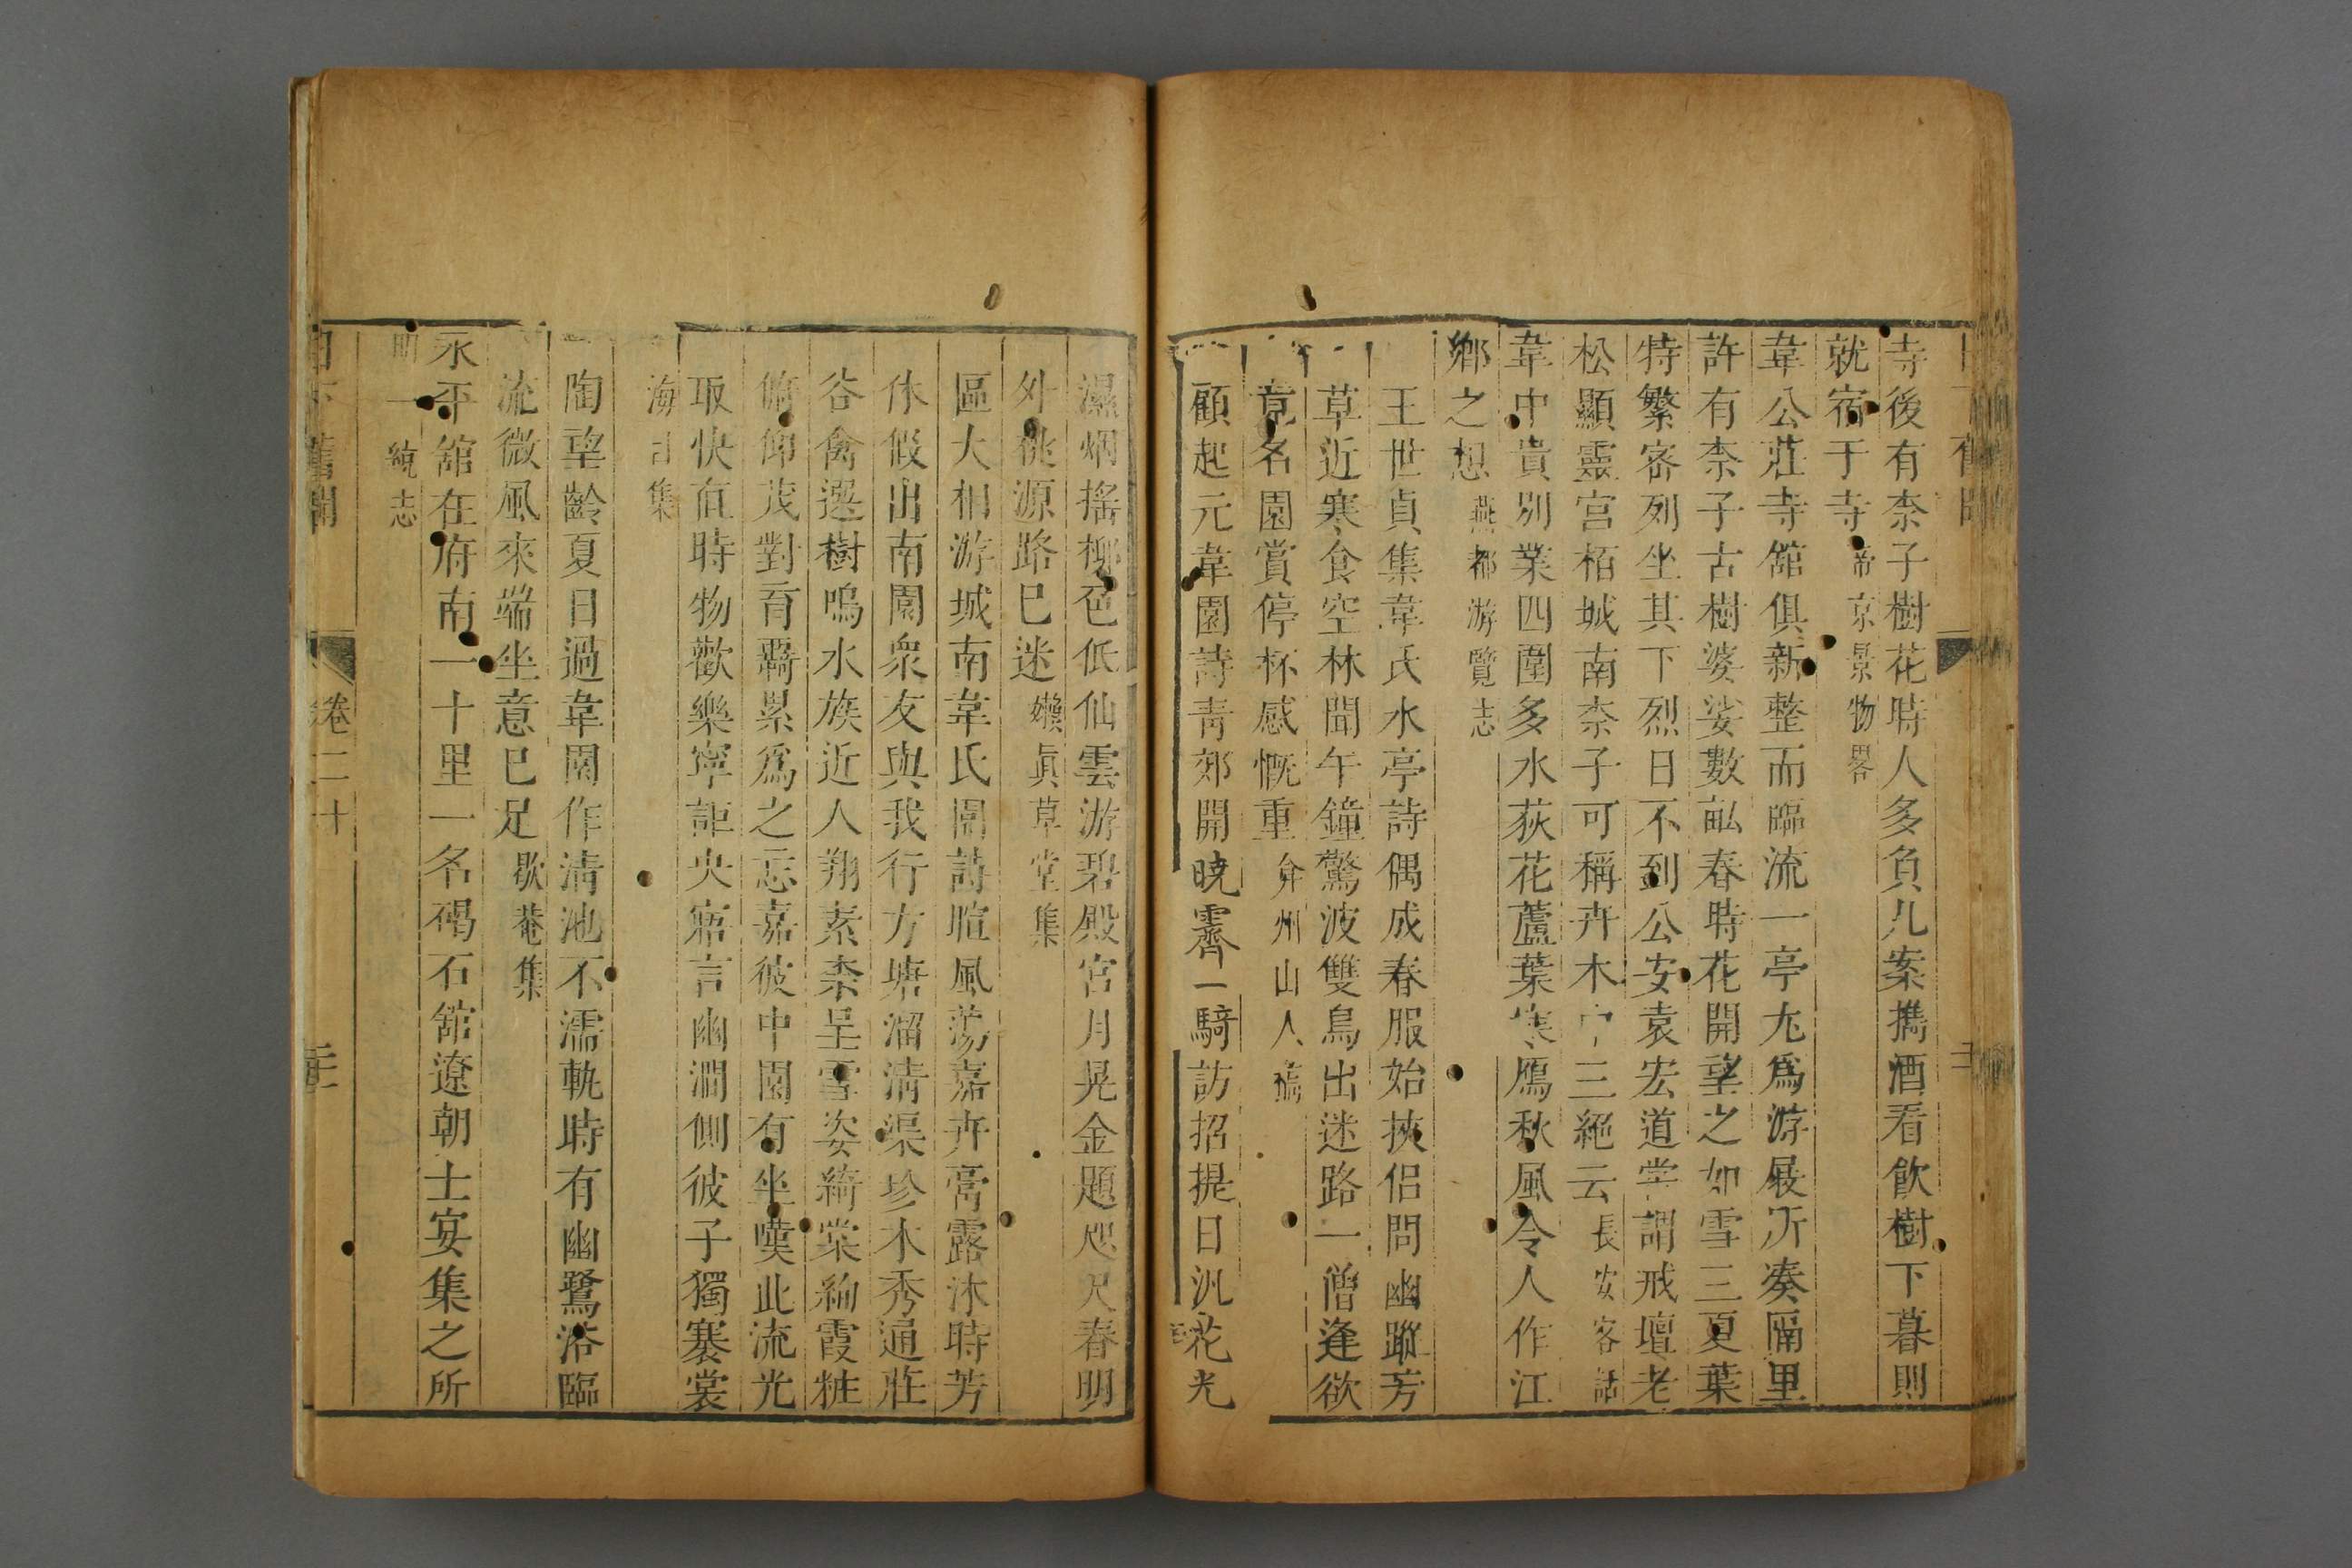 寺後有柰子樹花時人多負几案擕酒看飲樹下暮則
就宿于寺帝京景物畧
韋公莊寺舘俱新整而臨流一亭尤爲游屐所凑隔里
許有柰子古樹婆娑數畆春時花開望之如雪三夏葉
特繁密列坐其下烈日不到公安袁宏道嘗謂戒壇老
松顯靈宮栢城南柰子可稱卉木中三絕云長安客話
韋中貴别業四圍多水荻花蘆葉寒鴈秋風令人作江
鄉之想燕都游覽志
王世貞集韋氏水亭詩偶成春服始挾侶問幽蹤芳
草近寒食空林聞午鐘驚波雙鳥出迷路一僧逢欲
竟名園賞停杯感慨重弇州山人稿
顧起元韋園詩靑郊開曉霽一騎訪招提日汎花光
濕烟搖柳色低仙雲游碧殿宮月晃金題咫尺春明
外桃源路巳迷嬾眞草堂集
區大相游城南韋氏園詩暄風蕩嘉卉膏露沐時芳
休假出南園衆友與我行方塘溜清渠珍木秀通莊
谷禽選樹鳴水族近人翔素柰呈雪姿綺棠絢霞粧
俯仰茂對育覊累爲之忘嘉彼中園有坐嘆此流光
取快在時物歡樂寧詎央寤言幽澗側彼子獨褰裳
海目集
陶望齡夏日過韋園作淸池不濡軌時有幽鷺浴臨
流微風來端坐意巳足歇菴集
永平舘在府南一十里一名碣石舘遼朝士宴集之所
明一統志
日下舊聞
卷二十